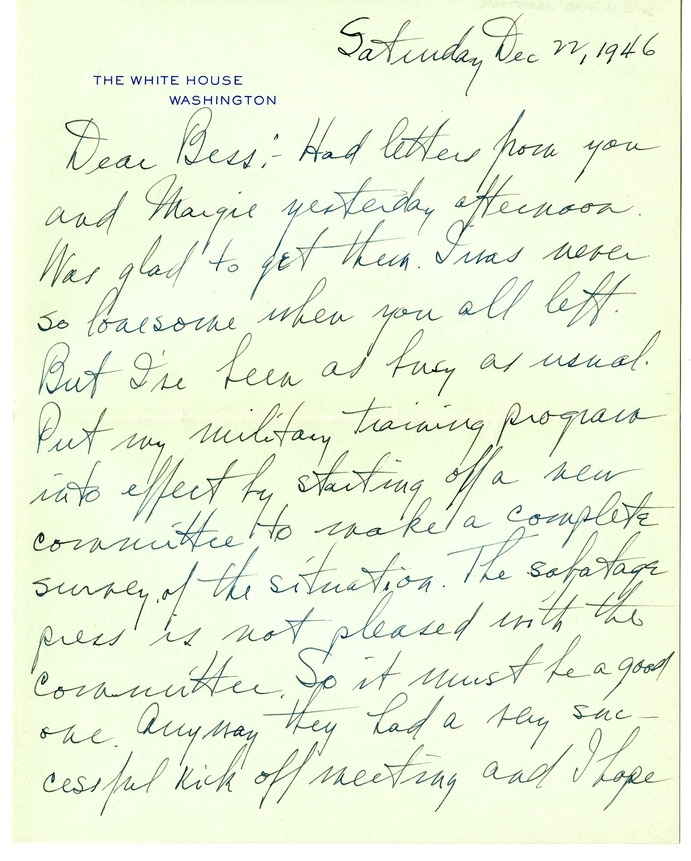 Saturday Dec 22, 1946
THE WHITE HOUSE
WASHINGTON
Dear Bess:- Had letters from you
and Margie yesterday afternoon.
Was glad to get them. I was never
so lonesome when you all left.
But I've been as busy as usual.
Put my military training program
into effect by starting off a new
committee to make a complete
survey of the situation. The sabotage
press is not pleased with the
committee. So it must be a good
one. Anyway they had a very suc-
cessful kick off meeting and I hope